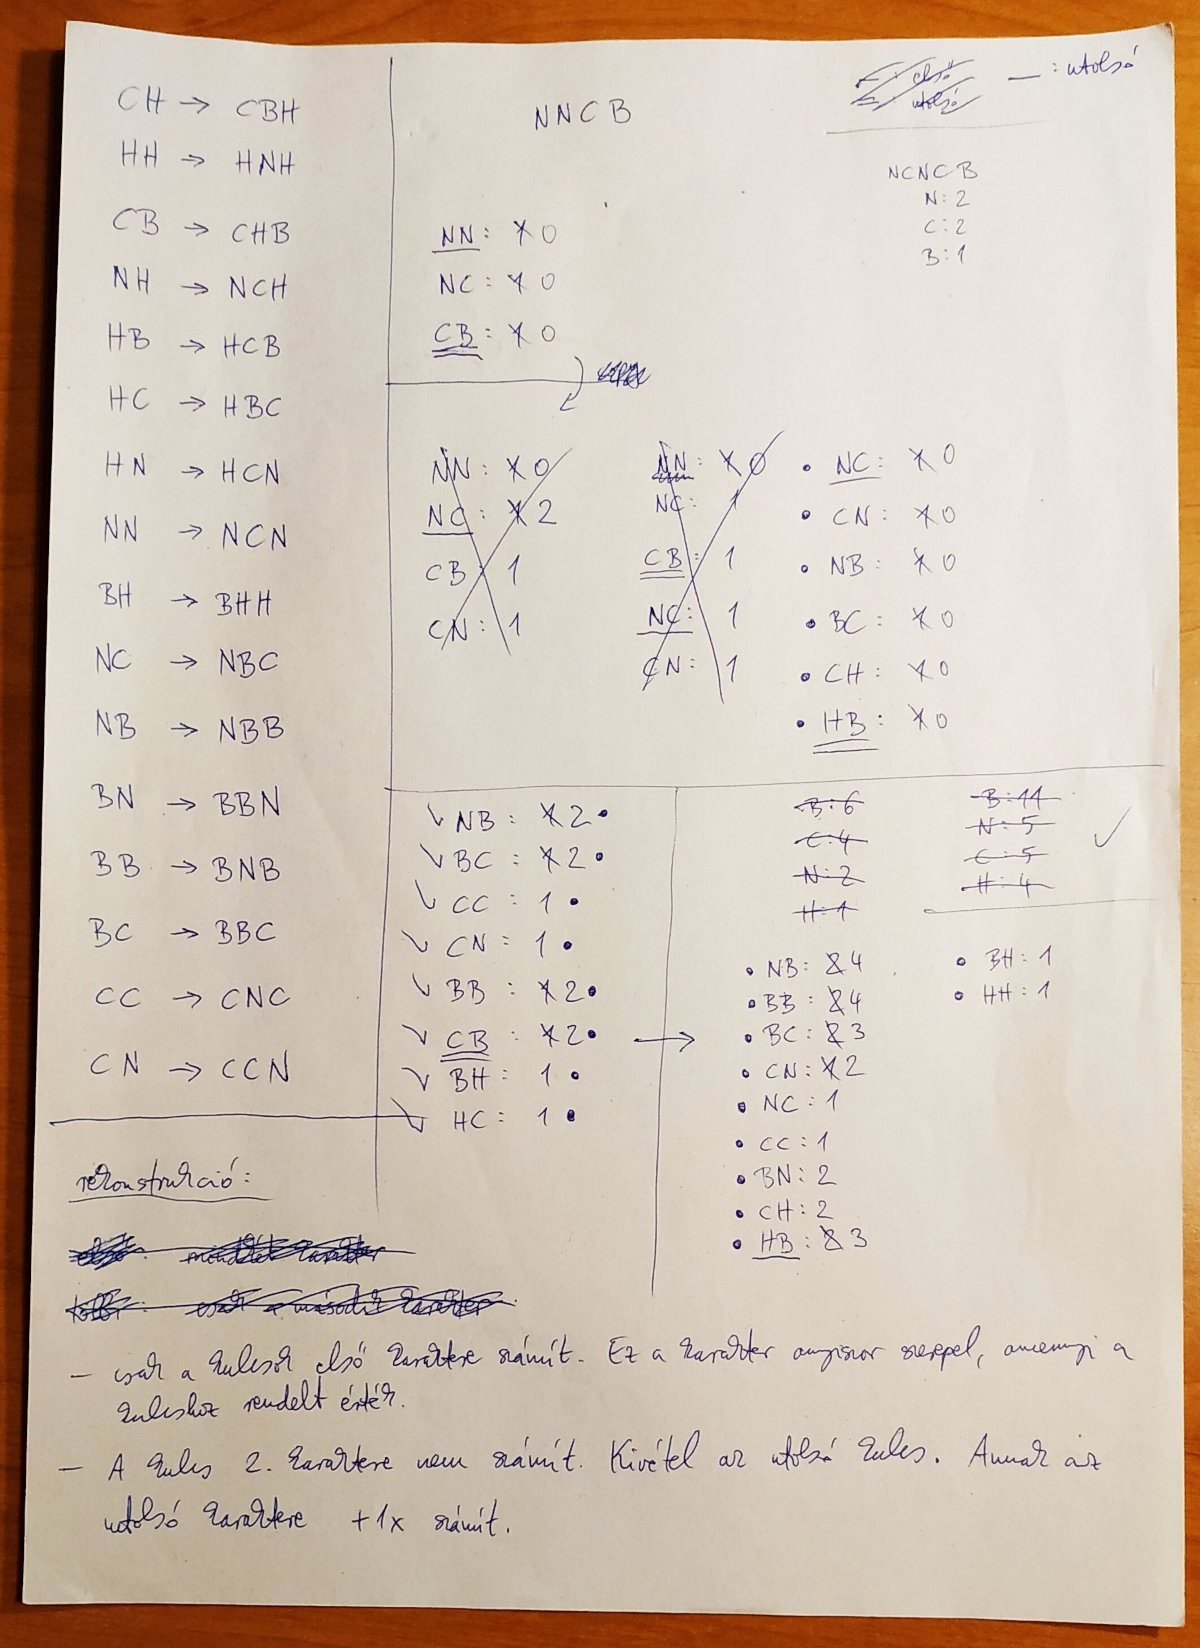 CH → CBH
HH → HNH
CB → CHB
NH → NCH
HB → HCB
HC → HBC
HN → HCN
NN → NCN
BH → BHH
NC → NBC
NB → NBB
BN → BBN
BB → BNB
BC → BBC
CC → CNC
CN → CCN
NNCB
első
utolsó
— : utolsó
NCNCB
N: 2
C: 2
B: 1
NN: 1 0
NC: 1 0
CB: 1 0
NN: 1 0
NC: 1 2
CB: 1
CN: 1
NN: 1 0
NC: 1
CB: 1
NC: 1
CN: 1
• NC: 1 0
• CN: 1 0
• NB: 1 0
• BC: 1 0
• CH: 1 0
• HB: 1 0
NB: 1 2 •
BC: 1 2 •
CC: 1 •
CN: 1 •
BB: 1 2 •
CB: 1 2 • →
BH: 1 •
HC: 1 •
B: 6
C: 4
N: 2
H: 1
B: 11
N: 5
C: 5
H: 4
• NB: 2 4
• BB: 2 4
• BC: 2 3
• CN: 1 2
• NC: 1
• CC: 1
• BN: 2
• CH: 2
• HB: 2 3
• BH: 1
• HH: 1
rekonstrukció:
első: mindkét karakter
többi: csak a második karakter
– csak a kulcsok első karaktere számít. Ez a karakter annyiszor szerepel, amennyi a
kulcshoz rendelt érték.
– A kulcs 2. karaktere nem számít. Kivétel az utolsó kulcs. Annak az
utolsó karaktere +1x számít.